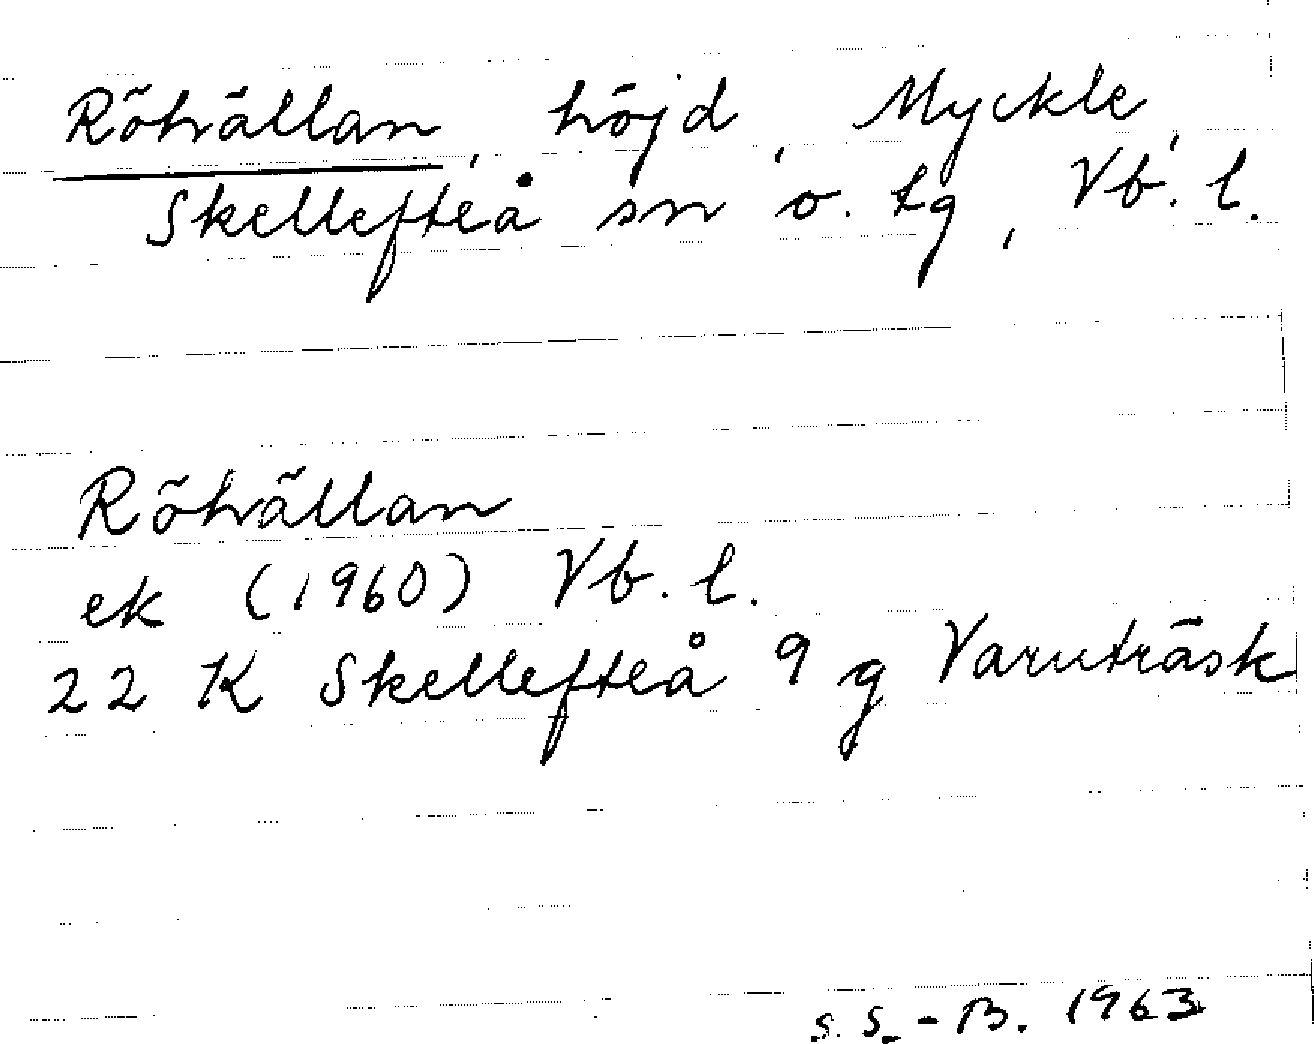 Röhällan, höjd, Myckle,
Skellefteå sn o. tg, Vb. l.
Röhällan
ek (1960) Vb. l.
22 K Skellefteå 9 g Varuträsk
S. S. - B. 1963